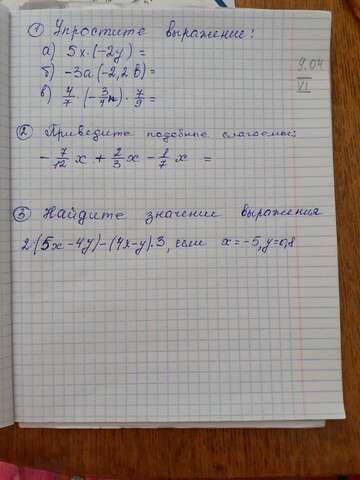 ① Упростите выражение:
а) 5x·(-2y) =
б) -3a(-2,2b) =
в) 4/7·(-3/4n)·7/9 =
9.04
VI
② Приведите подобные слагаемые:
-7/12x + 2/3x - 1/7x =
③ Найдите значение выражения
2(5x-4y)-(4x-y)·3, если x=-5, y=0,8.